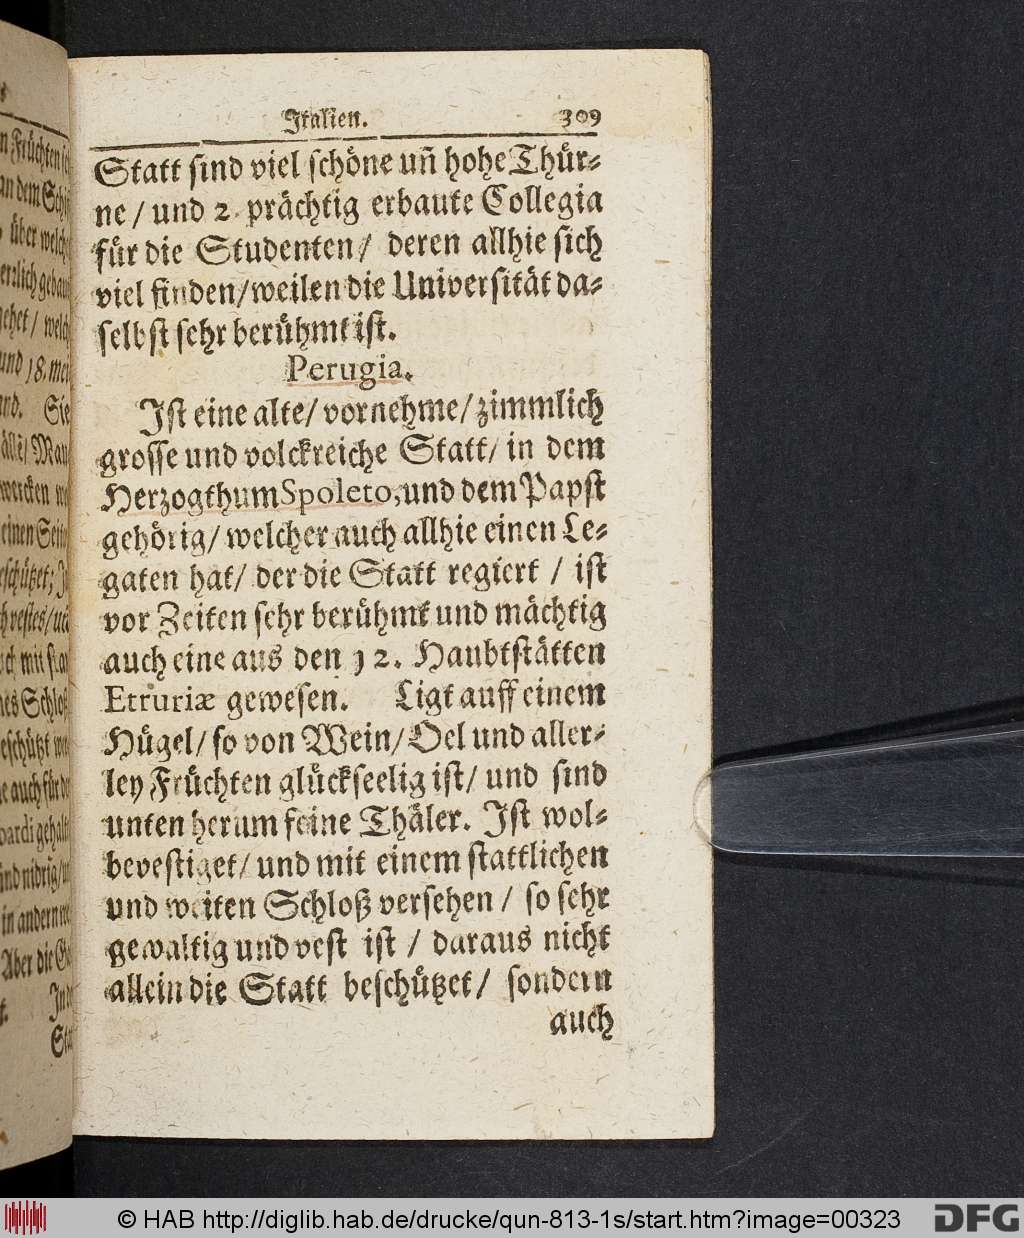 Italien. 309
Statt sind viel schöne uñ hohe Thür-
ne / und 2. prächtig erbaute Collegia
für die Studenten / deren allhie sich
viel finden / weilen die Universität da-
selbst sehr berühmt ist.
Perugia.
Ist eine alte / vornehme / zimmlich
grosse und volckreiche Statt / in dem
Herzogthum Spoleto, und dem Papst
gehörig / welcher auch allhie einen Le-
gaten hat / der die Statt regiert / ist
vor Zeiten sehr berühmt und mächtig
auch eine aus den 12. Haubtstätten
Etruriæ gewesen. Ligt auff einem
Hügel / so von Wein / Oel und aller-
ley Früchten glückseelig ist / und sind
unten herum feine Thäler. Ist wol-
bevestiget / und mit einem stattlichen
und weiten Schloß versehen / so sehr
gewaltig und vest ist / daraus nicht
allein die Statt beschützet / sondern
auch
© HAB http://diglib.hab.de/drucke/qun-813-1s/start.htm?image=00323
DFG